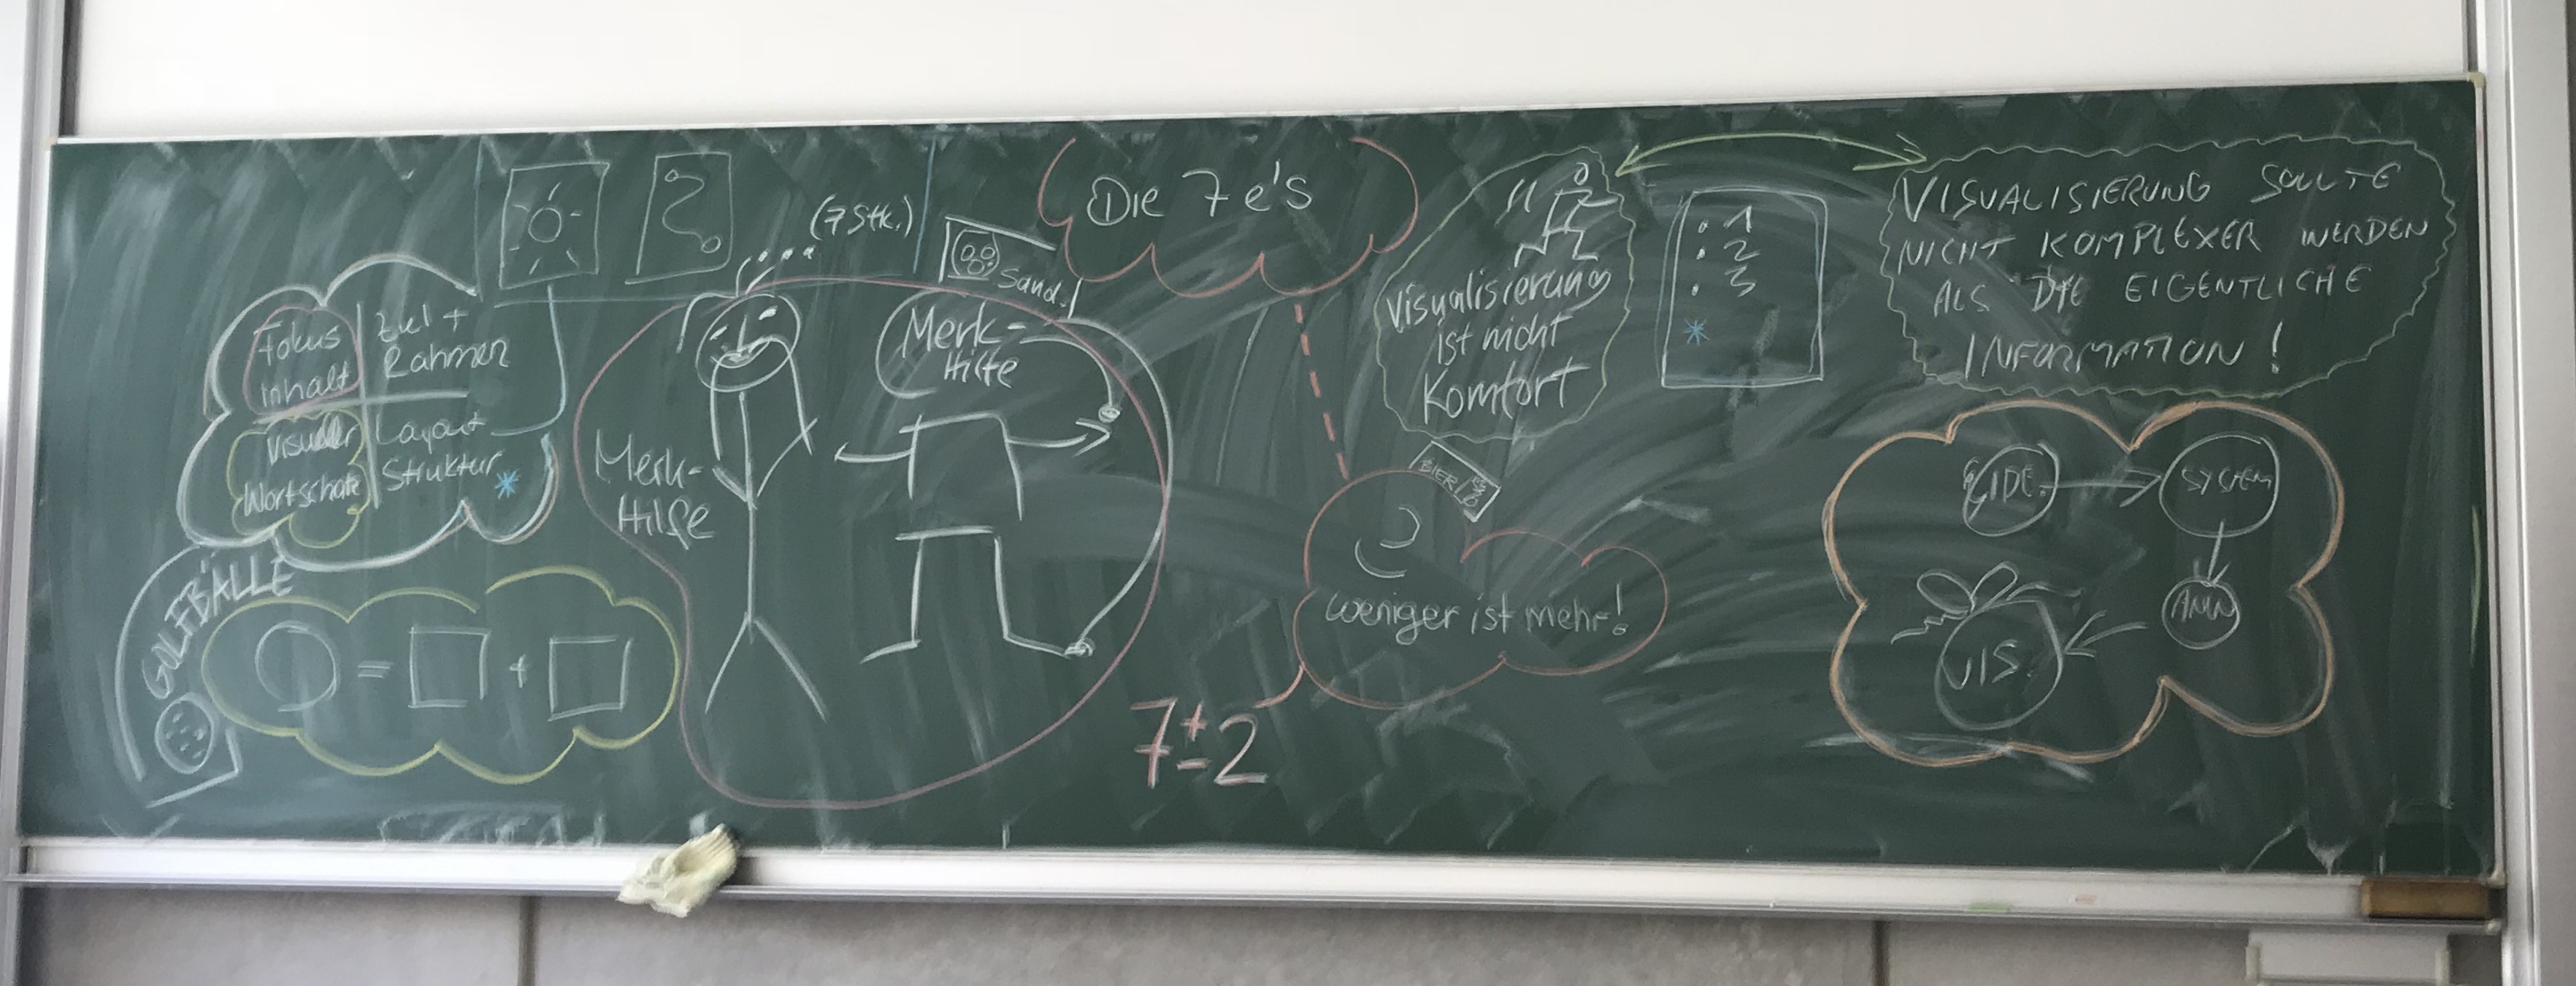 (7 Stk.)
Sand
Die 7 e's
Fokus
Inhalt
Ziel +
Rahmen
Visueller
Wortschatz
Layout
Struktur
*
GOLFBÄLLE
=
+
Merk-
Hilfe
Merk-
Hilfe
7±2
Visualisierung
ist nicht
Komfort
1
2
3
*
BIER
weniger ist mehr!
VISUALISIERUNG SOLLTE
NICHT KOMPLEXER WERDEN
ALS DIE EIGENTLICHE
INFORMATION!
SYSTEM
VIS.